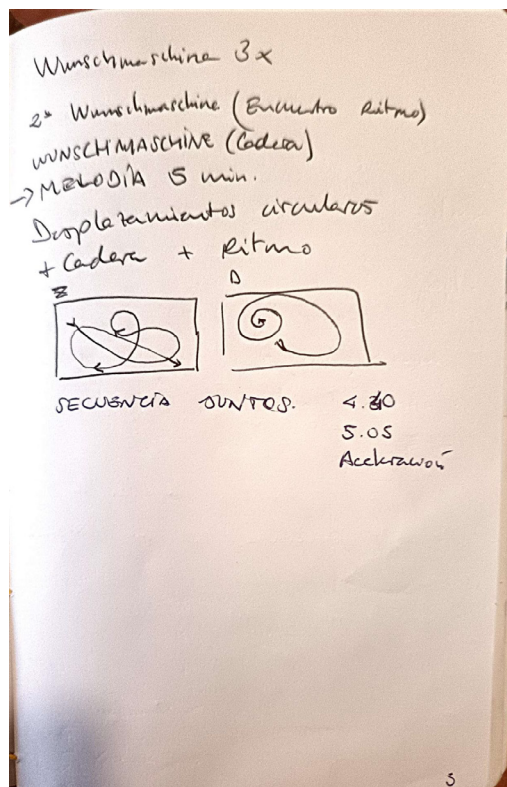 Wunschmaschine 3x
2ª Wunschmaschine (Encuentro Ritmo)
WUNSCHMASCHINE (Cadera)
→ MELODÍA 5 min.
Desplazamientos circulares
+ Cadera + Ritmo
Z D
SECUENCIA JUNTOS. 4.30
5.05
Aceleración
3